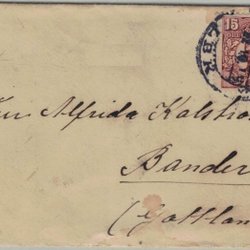 15
LBK
Fru Alfrida Kalströ
Bander
(Gottlan